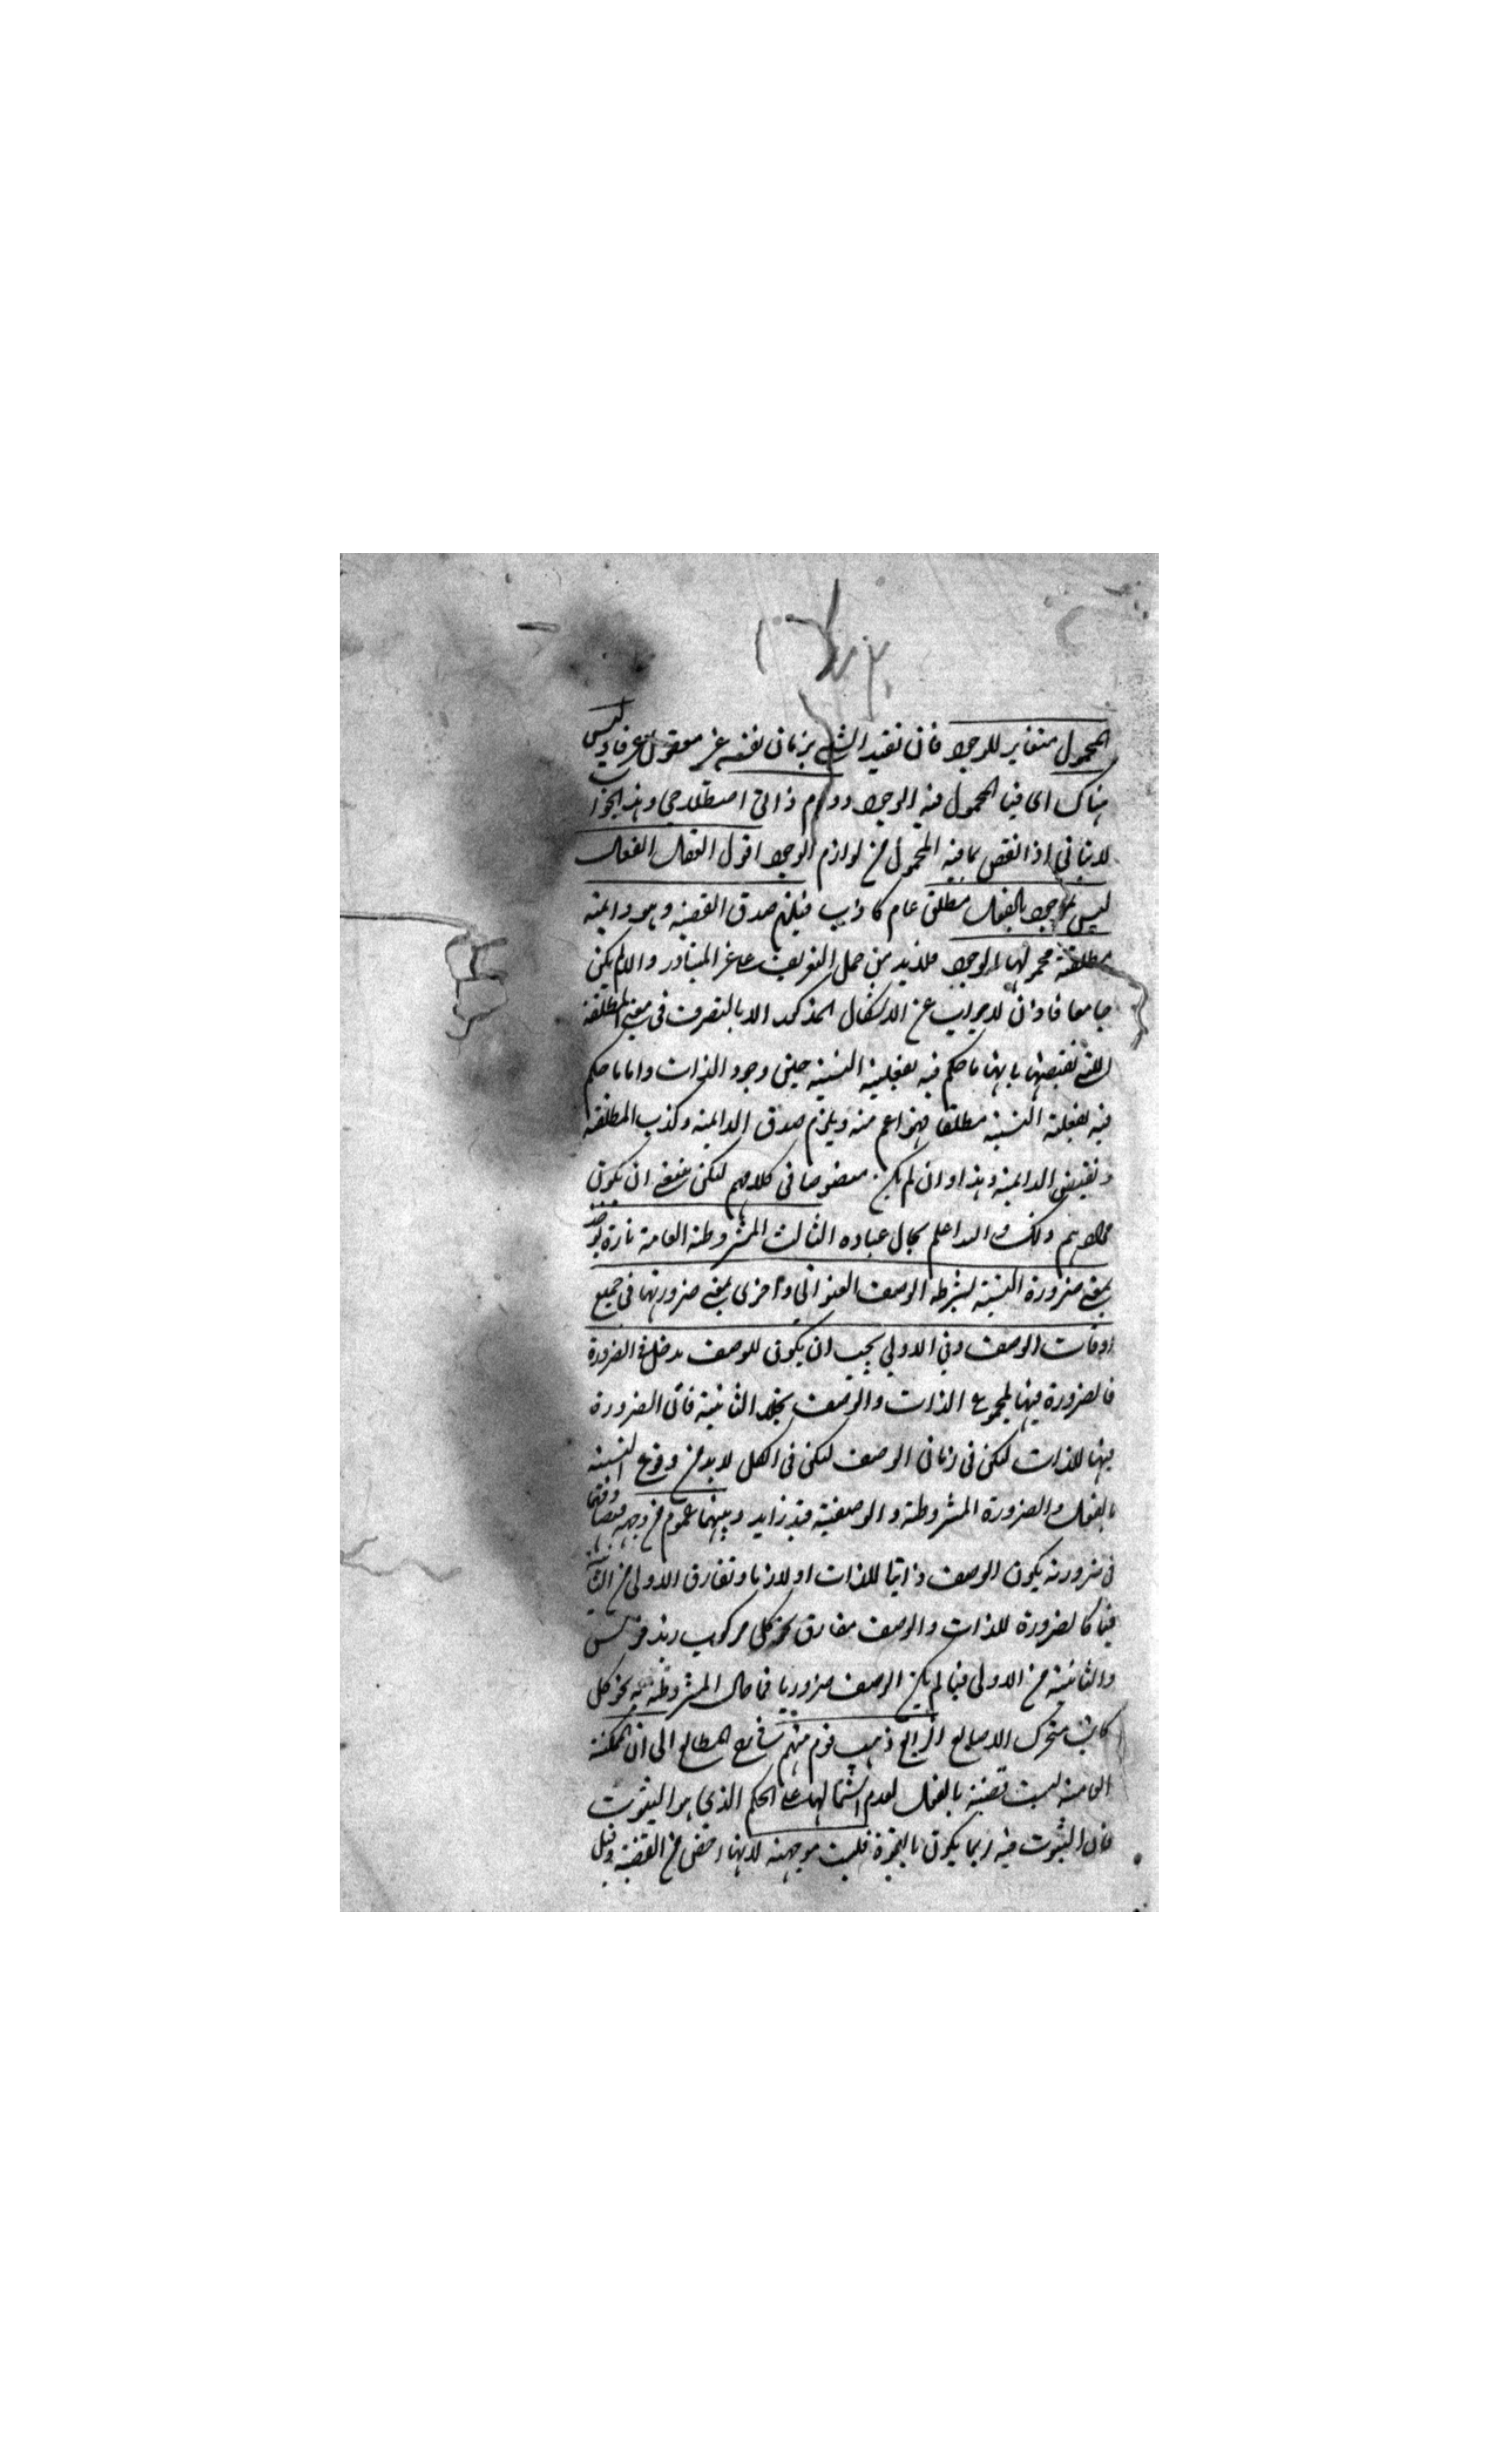 المحمول متغاير للوجود فان تقيد الشئ بزمان نفسه غير معقول عرفا وليس
هناك اى فيما المحمول فيه الوجود دوام ذاتى اصطلاحي وهذا الجواب
لا يتاتى اذا نقص بما فيه المحمول من لوازم الوجود اقول العقل الفعال
ليس بموجود بالفعل مطلق عام كاذب فيلزم صدق القضية وهو دايمة
مطلقة محمولها الوجود فلا بد من حمل التعريف على غير المتبادر والا لم يكن
جامعا فاذن لا جواب عن الاشكال المذكور الا بالتصرف في معنى المطلقة
التى نقيضها بانها ما حكم فيه بفعلية النسبة حين وجود الذات واما ما حكم
فيه بفعلية النسبة مطلقا فهو اعم منه ويلزم صدق الدايمة وكذب المطلقة
ونقيض الدايمة وهذا وان لم يكن منصوصا في كلامهم لكن ينبغي ان يكون
مرادهم ذلك والله اعلم بحال عباده الثالث المشروطة العامة تارة يوخذ
بمعنى ضرورة النسبة بشرط الوصف العنواني واخرى بمعنى ضرورتها في جميع
اوقات الوصف وفي الاولى يجب ان يكون للوصف مدخل في الضرورة
فالضرورة فيها لمجموع الذات والوصف بخلاف الثانية فان الضرورة
فيها للذات لكن في زمان الوصف لكن في الكل لا بد من وقوع النسبة
بالفعل والضرورة المشروطة والوصفية قيد زايد وبينهما عموم من وجه فتصادقهما
في ضرورته يكون الوصف ذاتيا للذات او لازما وتفارق الاولى من الثانية
فيما كالضرورة للذات والوصف مفارق نحو كل مركوب زيد فرس
والثانية من الاولى فيما لم يكن الوصف ضروريا في حال المشروطية به نحو كل
كاتب متحرك الاصابع الرابع ذهب قوم منهم شارح المطالع الى ان الممكنة
العامة ليست قضية بالفعل لعدم اشتمالها على الحكم الذي هو الثبوت
فان الثبوت فيه ربما يكون بالقوة فليست موجهة لانها اخص من القضية وقيل